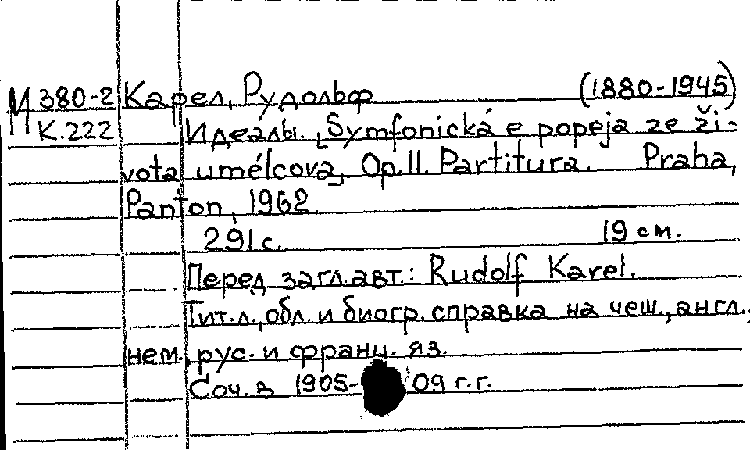 М 380-2 Карел, Рудольф (1880-1945)
К.222 Идеалы. [Symfonická e popeja ze ži-
vota umělcova], Op.11. Partitura. Praha,
Panton, 1962
291с. 19 см.
Перед загл.авт.: Rudolf Karel.
Тит.л., обл. и биогр. справка на чеш., англ.,
нем., рус. и франц. яз.
Соч. в 1905-09 г.г.